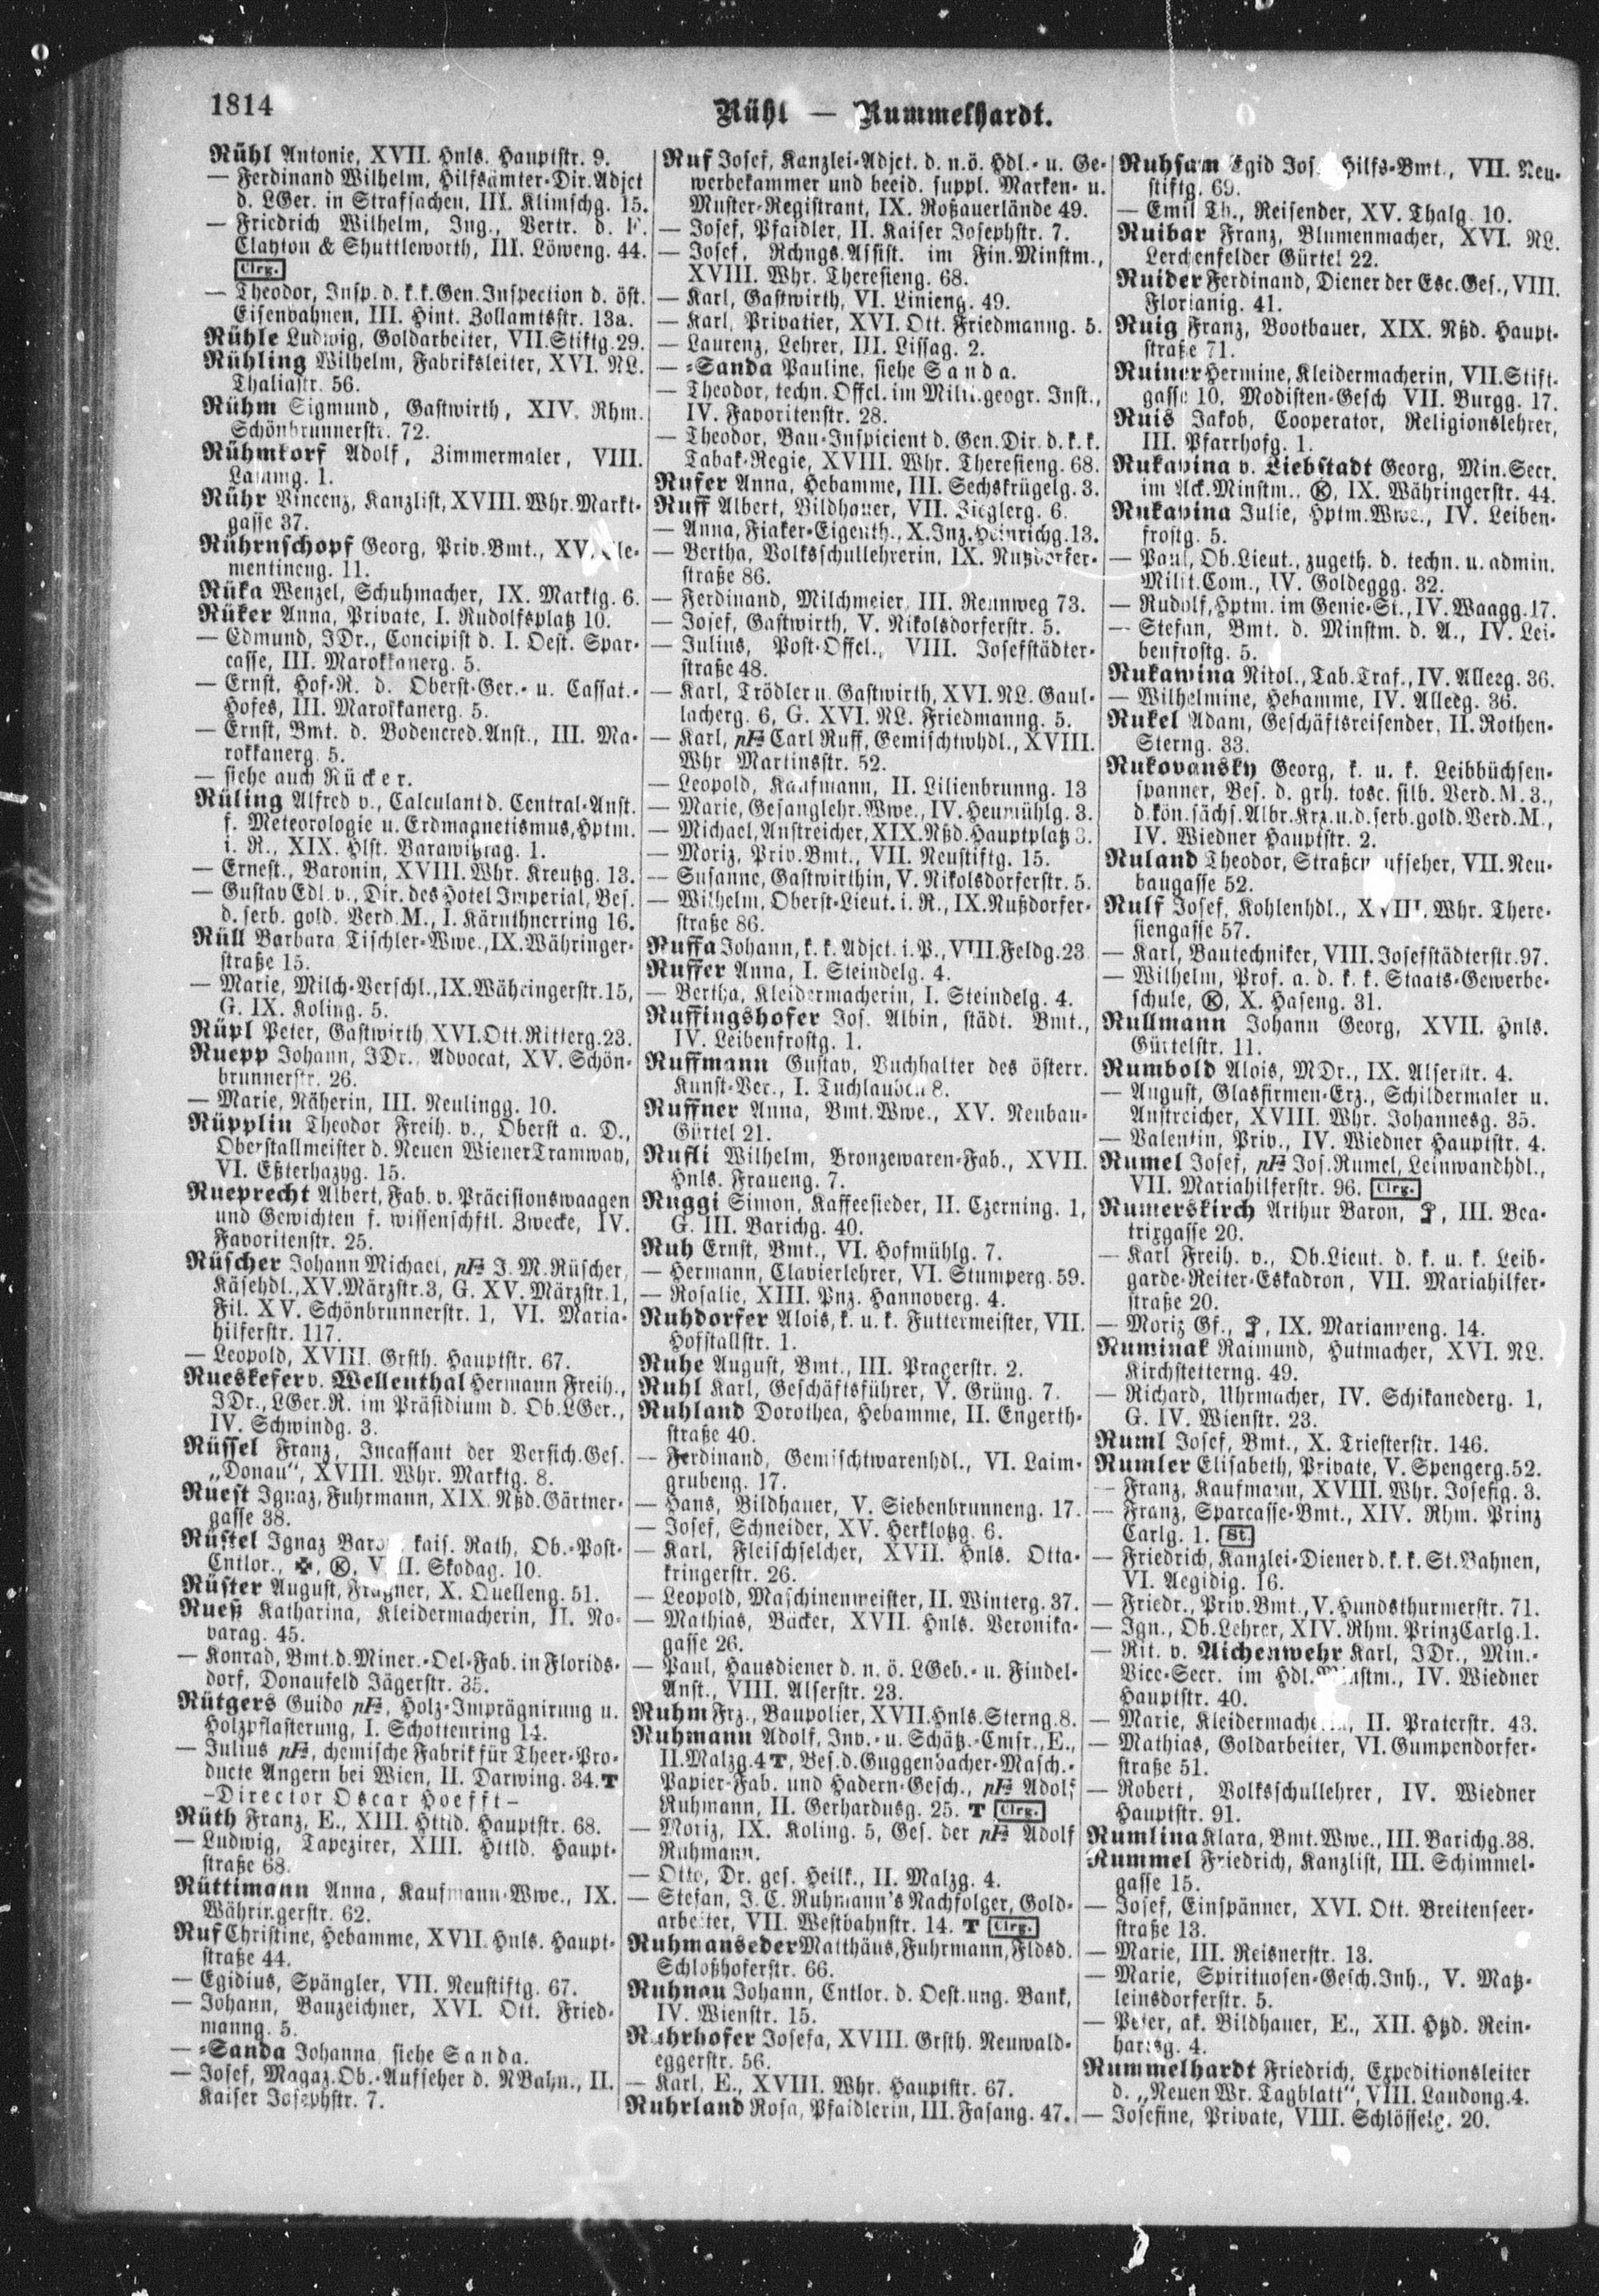 1814
Rühl — Rummelhardt.
Rühl Antonie, XVII. Hnls. Hauptstr. 9.
— Ferdinand Wilhelm, Hilfsämter-Dir.Adjct
d. LGer. in Strafsachen, III. Klimschg. 15.
— Friedrich Wilhelm, Ing., Vertr. d. F.
Clayton & Shuttleworth, III. Löweng. 44.
Clrg.
— Theodor, Insp. d. k.k.Gen.Inspection d. öst.
Eisenbahnen, III. Hint. Zollamtsstr. 13a.
Rühle Ludwig, Goldarbeiter, VII.Stiftg.29.
Rühling Wilhelm, Fabriksleiter, XVI. NL.
Thaliastr. 56.
Rühm Sigmund, Gastwirth, XIV. Rhm.
Schönbrunnerstr. 72.
Rühmkorf Adolf, Zimmermaler, VIII.
Lammg. 1.
Rühr Vincenz, Kanzlist, XVIII. Whr. Markt-
gasse 37.
Rührnschopf Georg, Priv.Bmt., XV. Cle-
mentineng. 11.
Rüka Wenzel, Schuhmacher, IX. Marktg. 6.
Rüker Anna, Private, I. Rudolfsplatz 10.
— Edmund, JDr., Concipist d. I. Oest. Spar-
casse, III. Marokkanerg. 5.
— Ernst, Hof-R. d. Oberst-Ger.- u. Cassat.-
Hofes, III. Marokkanerg. 5.
— Ernst, Bmt. d. Bodencred.Anst., III. Ma-
rokkanerg. 5.
— siehe auch Rücker.
Rüling Alfred v., Calculant d. Central-Anst.
f. Meteorologie u. Erdmagnetismus, Hptm.
i. R., XIX. Hlst. Barawitzkag. 1.
— Ernest., Baronin, XVIII. Whr. Kreutzg. 13.
— Gustav Edl. v., Dir. des Hotel Imperial, Bes.
d. serb. gold. Verd.M., I. Kärnthnerring 16.
Rüll Barbara Tischler-Wwe., IX. Währinger-
straße 15.
— Marie, Milch-Verschl., IX.Währingerstr.15,
G. IX. Koling. 5.
Rüpl Peter, Gastwirth XVI.Ott.Ritterg.23.
Ruepp Johann, JDr., Advocat, XV. Schön-
brunnerstr. 26.
— Marie, Näherin, III. Neulingg. 10.
Rüpplin Theodor Freih. v., Oberst a. D.,
Oberstallmeister d. Neuen Wiener Tramway,
VI. Eßterhazyg. 15.
Rueprecht Albert, Fab. v. Präcisionswaagen
und Gewichten f. wissenschftl. Zwecke, IV.
Favoritenstr. 25.
Rüscher Johann Michael, pFa J. M. Rüscher,
Käsehdl., XV. Märzstr.3, G. XV. Märzstr.1,
Fil. XV. Schönbrunnerstr. 1, VI. Maria-
hilferstr. 117.
— Leopold, XVIII. Grsth. Hauptstr. 67.
Rueskefer v. Wellenthal Hermann Freih.,
JDr., LGer.R. im Präsidium d. Ob.LGer.,
IV. Schwindg. 3.
Rüssel Franz, Incassant der Versich.Ges.
„Donau“, XVIII. Whr. Marktg. 8.
Ruest Ignaz, Fuhrmann, XIX. Nßd. Gärtner-
gasse 38.
Rüstel Ignaz kais. Rath, Ob.-Post-
Cntlor., ✠, Ⓚ, Skodag. 10.
Rüster August, Fragner, X. Quelleng. 51.
Rueß Katharina, Kleidermacherin, II. No-
varag. 45.
— Konrad, Bmt.d.Miner.-Oel-Fab. in Florids-
dorf, Donaufeld Jägerstr. 35.
Rütgers Guido pFa, Holz-Imprägnirung u.
Holzpflasterung, I. Schottenring 14.
— Julius pFa, chemische Fabrik für Theer-Pro-
ducte Angern bei Wien, II. Darwing. 34. T
–Director Oscar Hoefft–
Rüth Franz, E., XIII. Httld. Hauptstr. 68.
— Ludwig, Tapezirer, XIII. Httld. Haupt-
straße 68.
Rüttimann Anna, Kaufmann-Wwe., IX.
Währingerstr. 62.
Ruf Christine, Hebamme, XVII. Hnls. Haupt-
straße 44.
— Egidius, Spängler, VII. Neustiftg. 67.
— Johann, Bauzeichner, XVI. Ott. Fried-
manng. 5.
— -Sanda Johanna, siehe Sanda.
— Josef, Magaz.Ob.-Aufseher d. NBahn., II.
Kaiser Josephstr. 7.
Ruf Josef, Kanzlei-Adjct. d. n.ö. Hdl.- u. Ge-
werbekammer und beeid. suppl. Marken- u.
Muster-Registrant, IX. Roßauerlände 49.
— Josef, Pfaidler, II. Kaiser Josephstr. 7.
— Josef, Rchngs.Assist. im Fin.Minstm.,
XVIII. Whr. Theresieng. 68.
— Karl, Gastwirth, VI. Linieng. 49.
— Karl, Privatier, XVI. Ott. Friedmanng. 5.
— Laurenz, Lehrer, III. Lissag. 2.
— -Sanda Pauline, siehe Sanda.
— Theodor, techn. Offcl. im Milit.geogr. Inst.,
IV. Favoritenstr. 28.
— Theodor, Bau-Inspicient d. Gen.Dir. d. k. k.
Tabak-Regie, XVIII. Whr. Theresieng. 68.
Rufer Anna, Hebamme, III. Sechskrügelg. 3.
Ruff Albert, Bildhauer, VII. Zieglerg. 6.
— Anna, Fiaker-Eigenth., X. Inz. Heinrichg. 13.
— Bertha, Volksschullehrerin, IX. Nußdorfer-
straße 86.
— Ferdinand, Milchmeier, III. Rennweg 73.
— Josef, Gastwirth, V. Nikolsdorferstr. 5.
— Julius, Post-Offcl., VIII. Josefstädter-
straße 48.
— Karl, Trödler u. Gastwirth, XVI. NL. Gaul-
lacherg. 6, G. XVI. NL. Friedmanng. 5.
— Karl, pFa Carl Ruff, Gemischtwhdl., XVIII.
Whr. Martinsstr. 52.
— Leopold, Kaufmann, II. Lilienbrunng. 13
— Marie, Gesanglehr.Wwe., IV. Heumühlg. 3.
— Michael, Anstreicher, XIX.Nßd.Hauptplatz 3.
— Moriz, Priv.Bmt., VII. Neustiftg. 15.
— Susanne, Gastwirthin, V. Nikolsdorferstr. 5.
— Wilhelm, Oberst-Lieut. i. R., IX.Nußdorfer-
straße 86.
Ruffa Johann, k. k. Adjct. i. P., VIII. Feldg. 23
Ruffer Anna, I. Steindelg. 4.
— Bertha, Kleidermacherin, I. Steindelg. 4.
Ruffingshofer Jos. Albin, städt. Bmt.,
IV. Leibenfrostg. 1.
Ruffmann Gustav, Buchhalter des österr.
Kunst-Ver., I. Tuchlauben 8.
Ruffner Anna, Bmt.Wwe., XV. Neubau-
Gürtel 21.
Rufli Wilhelm, Bronzewaren-Fab., XVII.
Hnls. Fraueng. 7.
Ruggi Simon, Kaffeesieder, II. Czerning. 1,
G. III. Barichg. 40.
Ruh Ernst, Bmt., VI. Hofmühlg. 7.
— Hermann, Clavierlehrer, VI. Stumperg. 59.
— Rosalie, XIII. Pnz. Hannoverg. 4.
Ruhdorfer Alois, k. u. k. Futtermeister, VII.
Hofstallstr. 1.
Ruhe August, Bmt., III. Pragerstr. 2.
Ruhl Karl, Geschäftsführer, V. Grüng. 7.
Ruhland Dorothea, Hebamme, II. Engerth-
straße 40.
— Ferdinand, Gemischtwarenhdl., VI. Laim-
grubeng. 17.
— Hans, Bildhauer, V. Siebenbrunneng. 17.
— Josef, Schneider, XV. Herklotzg. 6.
— Karl, Fleischselcher, XVII. Hnls. Otta-
kringerstr. 26.
— Leopold, Maschinenmeister, II. Winterg. 37.
— Mathias, Bäcker, XVII. Hnls. Veronika-
gasse 26.
— Paul, Hausdiener d. n. ö. LGeb.- u. Findel-
Anst., VIII. Alserstr. 23.
Ruhm Frz., Baupolier, XVII.Hnls.Sterng.8.
Ruhmann Adolf, Inv.- u. Schätz.-Cmsr., E.,
II.Malzg.4 T, Bes.d.Guggenbacher-Masch.-
Papier-Fab. und Hadern-Gesch., pFa Adolf
Ruhmann, II. Gerhardusg. 25. T Clrg.
— Moriz, IX. Koling. 5, Ges. der pFa Adolf
Ruhmann.
— Otto, Dr. ges. Heilk., II. Malzg. 4.
— Stefan, J. C. Ruhmann's Nachfolger, Gold-
arbeiter, VII. Westbahnstr. 14. T Clrg.
Ruhmanseder Matthäus, Fuhrmann, Fldsd.
Schloßhoferstr. 66.
Ruhnau Johann, Cntlor. d. Oest.ung. Bank,
IV. Wienstr. 15.
Ruhrhofer Josefa, XVIII. Grsth. Neuwald-
eggerstr. 56.
— Karl, E., XVIII. Whr. Hauptstr. 67.
Ruhrland Rosa, Pfaidlerin, III. Fasang. 47.
Ruhsam Egid Jos. Hilfs-Bmt., VII. Neu-
stiftg. 69.
— Emil Th., Reisender, XV. Thalg. 10.
Ruibar Franz, Blumenmacher, XVI. NL.
Lerchenfelder Gürtel 22.
Ruider Ferdinand, Diener der Esc. Ges., VIII.
Florianig. 41.
Ruig Franz, Bootbauer, XIX. Nßd. Haupt-
straße 71.
Ruiner Hermine, Kleidermacherin, VII.Stift-
gasse 10, Modisten-Gesch VII. Burgg. 17.
Ruis Jakob, Cooperator, Religionslehrer,
III. Pfarrhofg. 1.
Rukavina v. Liebstadt Georg, Min.Secr.
im Ack.Minstm., Ⓚ, IX. Währingerstr. 44.
Rukavina Julie, Hptm.Wwe., IV. Leiben-
frostg. 5.
— Paul, Ob.Lieut., zugeth. d. techn. u. admin.
Milit.Com., IV. Goldeggg. 32.
— Rudolf, Hptm. im Genie-St., IV. Waagg. 17.
— Stefan, Bmt. d. Minstm. d. A., IV. Lei-
benfrostg. 5.
Rukawina Nikol., Tab.Traf., IV. Alleeg. 36.
— Wilhelmine, Hebamme, IV. Alleeg. 36.
Rukel Adam, Geschäftsreisender, II. Rothen-
Sterng. 33.
Rukovansky Georg, k. u. k. Leibbüchsen-
spanner, Bes. d. grh. tosc. silb. Verd.M. 3.,
d.kön.sächs.Albr.Krz.u.d.serb.gold.Verd.M.,
IV. Wiedner Hauptstr. 2.
Ruland Theodor, Straßenaufseher, VII. Neu-
baugasse 52.
Rulf Josef, Kohlenhdl., XVIII. Whr. There-
siengasse 57.
— Karl, Bautechniker, VIII. Josefstädterstr. 97.
— Wilhelm, Prof. a. d. k. k. Staats-Gewerbe-
schule, Ⓚ, X. Haseng. 31.
Rullmann Johann Georg, XVII. Hnls.
Gürtelstr. 11.
Rumbold Alois, MDr., IX. Alserstr. 4.
— August, Glasfirmen-Erz., Schildermaler u.
Anstreicher, XVIII. Whr. Johannesg. 35.
— Valentin, Priv., IV. Wiedner Hauptstr. 4.
Rumel Josef, pFa Jos. Rumel, Leinwandhdl.,
VII. Mariahilferstr. 96. Clrg.
Rumerskirch Arthur Baron, III. Bea-
trixgasse 20.
— Karl Freih. v., Ob.Lieut. d. k. u. k. Leib-
garde-Reiter-Eskadron, VII. Mariahilfer-
straße 20.
— Moriz Gf., IX. Marianneng. 14.
Ruminak Raimund, Hutmacher, XVI. NL.
Kirchstetterng. 49.
— Richard, Uhrmacher, IV. Schikanederg. 1,
G. IV. Wienstr. 23.
Ruml Josef, Bmt., X. Triesterstr. 146.
Rumler Elisabeth, Private, V. Spengerg. 52.
— Franz, Kaufmann, XVIII. Whr. Josefig. 3.
— Franz, Sparcasse-Bmt., XIV. Rhm. Prinz
Carlg. 1. St.
— Friedrich, Kanzlei-Diener d. k. k. St.Bahnen,
VI. Aegidig. 16.
— Friedr., Priv.Bmt., V. Hundsthurmerstr. 71.
— Ign., Ob.Lehrer, XIV. Rhm. Prinz Carlg. 1.
— Rit. v. Aichenwehr Karl, JDr., Min.-
Vice-Secr. im Hdl.Minstm., IV. Wiedner
Hauptstr. 40.
— Marie, Kleidermacherin, II. Praterstr. 43.
— Mathias, Goldarbeiter, VI. Gumpendorfer-
straße 51.
— Robert, Volksschullehrer, IV. Wiedner
Hauptstr. 91.
Rumlina Klara, Bmt.Wwe., III. Barichg. 38.
Rummel Friedrich, Kanzlist, III. Schimmel-
gasse 15.
— Josef, Einspänner, XVI. Ott. Breitenseer-
straße 13.
— Marie, III. Reisnerstr. 13.
— Marie, Spirituosen-Gesch.Inh., V. Matz-
leinsdorferstr. 5.
— Peter, ak. Bildhauer, E., XII. Htzd. Rein-
hartsg. 4.
Rummelhardt Friedrich, Expeditionsleiter
d. „Neuen Wr. Tagblatt“, VIII. Laudong. 4.
— Josefine, Private, VIII. Schlösselg. 20.